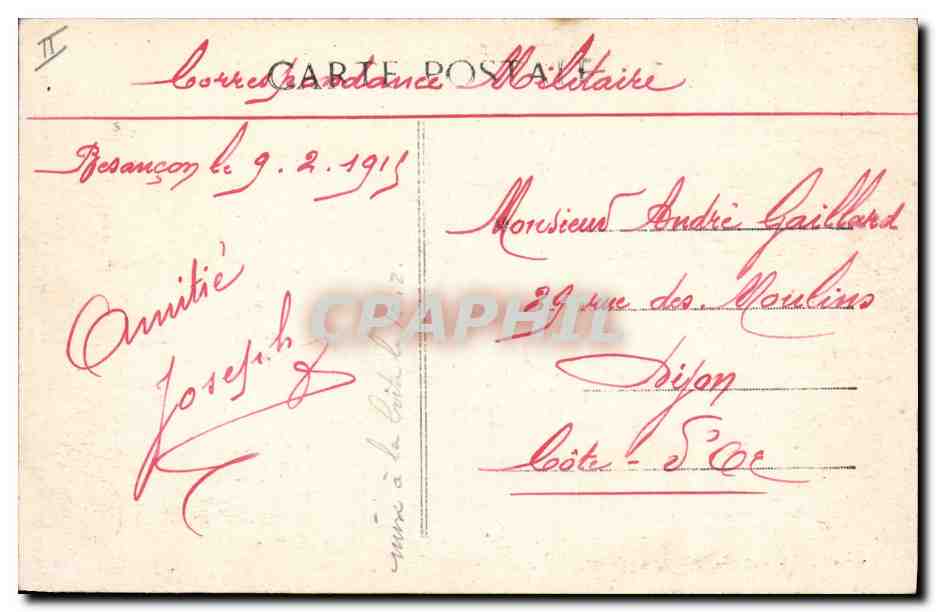 II
CARTE POSTALE
Correspondance Militaire
Besançon le 9.2.1915
Monsieur André Gaillard
29 rue des Moulins
Dijon
Côte-d'Or
Amitié
Joseph
mise à la boite le
CPAPHIL